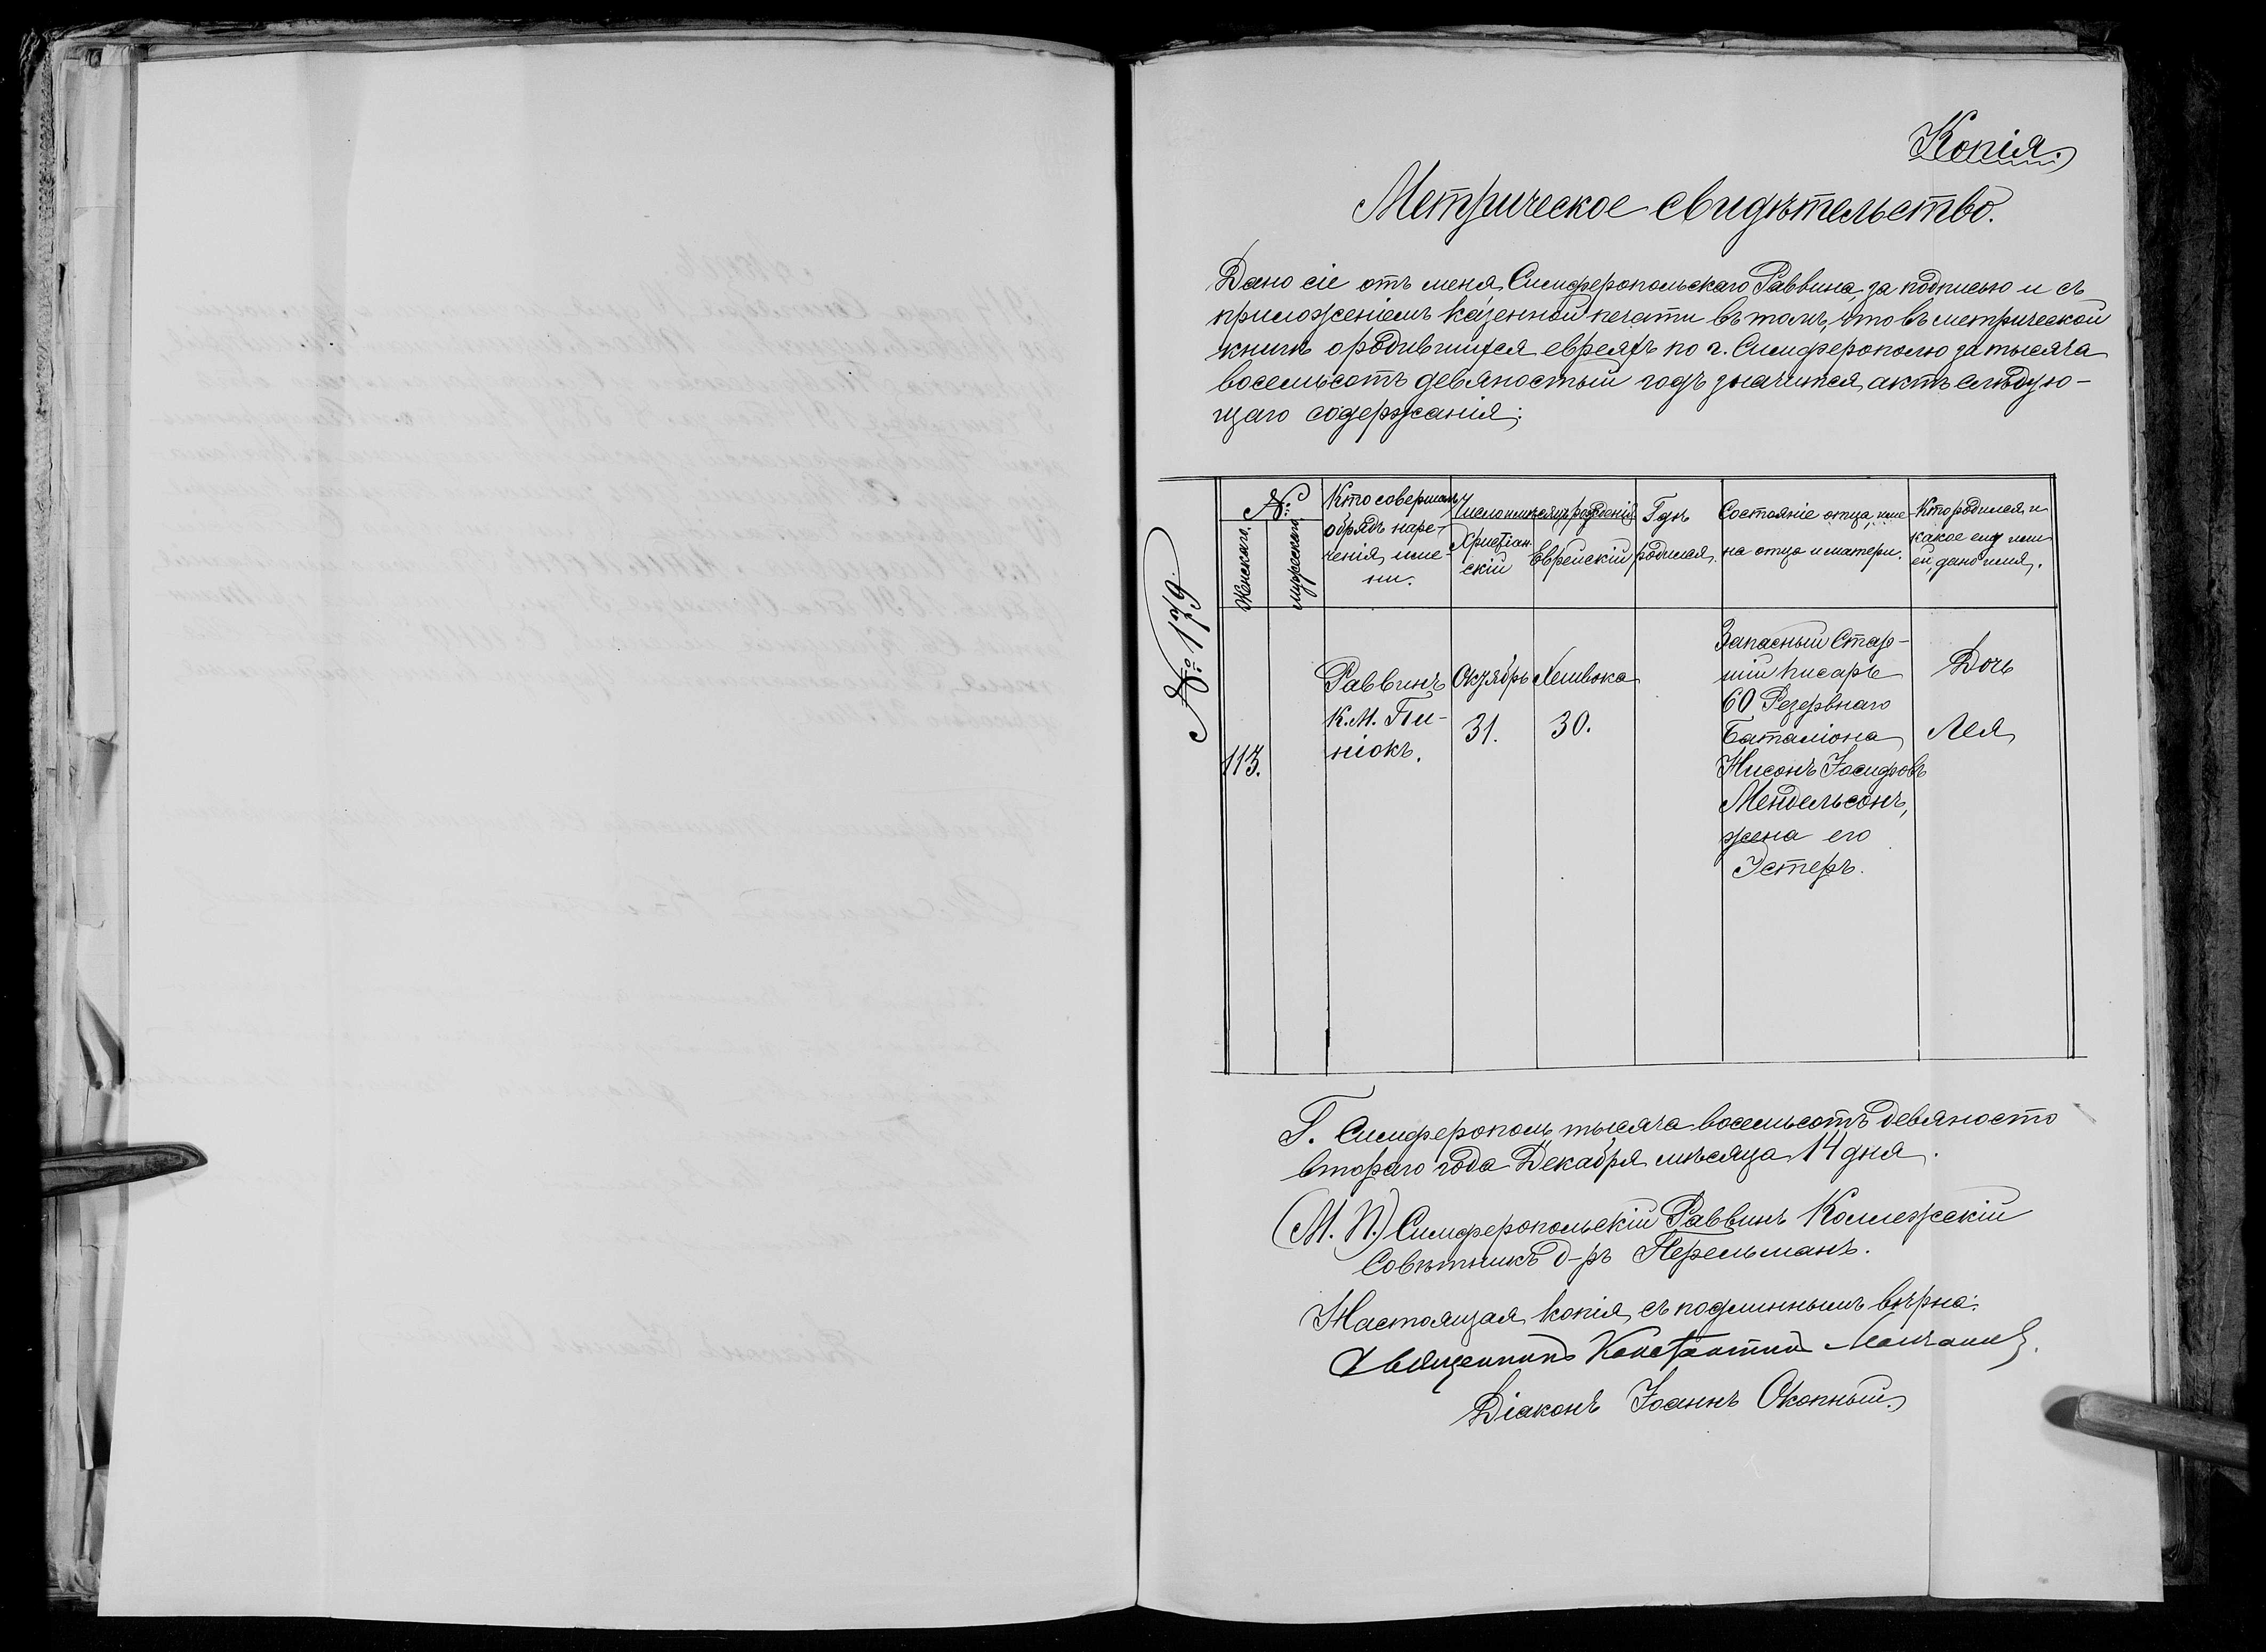 Копія.
Метрическое свидѣтельство.
Дано сіе отъ меня, Симферопольскаго Раввина, за подписью и съ
приложеніемъ казенной печати въ томъ, что въ метрической
книгѣ о родившихся евреяхъ по г. Симферополю за тысяча
восемьсотъ девяностый годъ значится актъ слѣдую-
щаго содержанія:
№ 179.
№
Женскаго.
Мужескаго.
Кто совершалъ
обрядъ наре-
ченія име-
ни.
Число и мѣсяцъ рожденія
Христіан-
скій
Еврейскій
Гдѣ
родился.
Состояніе отца, име-
на отца и матери.
Кто родился и
какое ему или
ей дано имя.
113.
Раввинъ
К. М. Пи-
нюкъ.
Октябрь
31.
Хешвока
30.
Запасный Стар-
шій писарь
60 Резервнаго
Баталіона
Нисонъ Іосифовъ
Мендельсонъ,
жена его
Эстеръ.
Дочь
Лея
Г. Симферополь тысяча восемьсотъ девяносто
втораго года Декабря мѣсяца 14 дня.
(М. П.) Симферопольскій Раввинъ Коллежскій
Совѣтникъ д-ръ Перельманъ.
Настоящая копія съ подлиннымъ вѣрна:
Священникъ Константинъ
Діаконъ Іоаннъ Окопный.